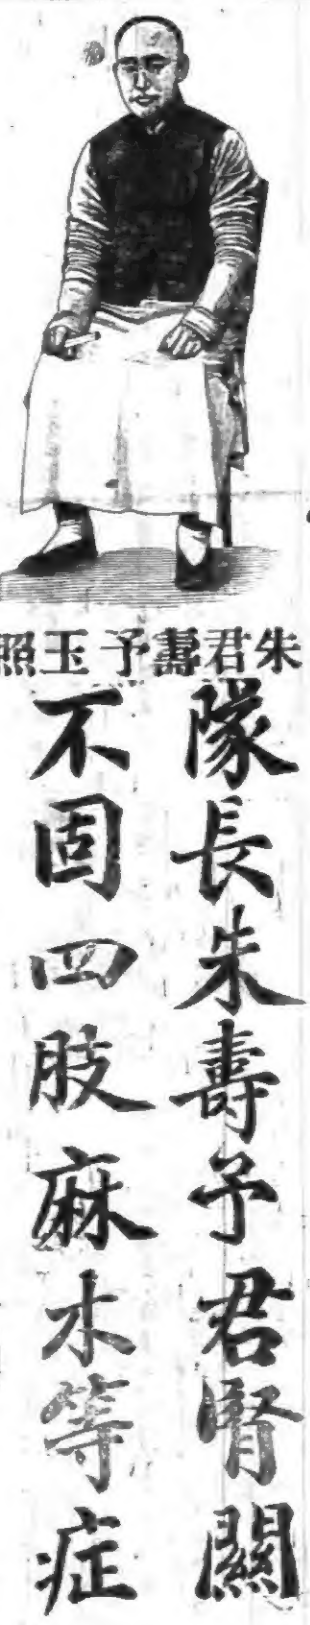 朱君壽予玉照
隊長朱壽予君腎關
不固四肢麻木等症